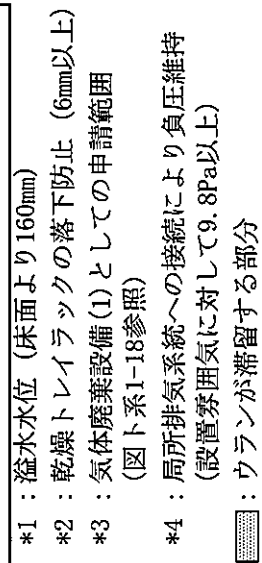 *1 : 溢水水位 (床面より160mm)
*2 : 乾燥トレイラックの落下防止 (6mm以上)
*3 : 気体廃棄設備(1)としての申請範囲
(図ト系1-18参照)
*4 : 局所排気系統への接続により負圧維持
(設置雰囲気に対して9.8Pa以上)
: ウランが滞留する部分